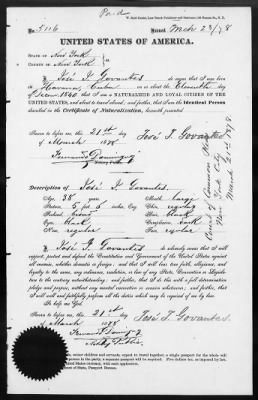 Paid
No. 5116 Issued Mch 23/78
UNITED STATES OF AMERICA.
STATE OF New York
COUNTY OF New York
I, José F. Govantes do swear that I was born
in Havana, Cuba on or about the Eleventh day
of 1840 that I am a NATURALIZED AND LOYAL CITIZEN OF THE
UNITED STATES, and about to travel abroad, and further, that I am the Identical Person
described in the Certificate of Naturalization, herewith presented.
Sworn to before me, this 21st day
of March 1878
José F. Govantes
Notary Public.
New York City
March 21st 1878.
Description of José F. Govantes.
Age, 38 years Mouth large
Stature, 5 feet 5 inches, Eng. Chin regular
Forehead, Hair black
Eyes, black Complexion,
Nose, regular Face regular
I, José F. Govantes do solemnly swear that I will
support, protect and defend the Constitution and Government of the United States against
all enemies, whether domestic or foreign; and that I will bear true faith, allegiance, and
loyalty to the same, any ordinance, resolution, or law of any State, Convention or Legislature
to the contrary notwithstanding; and further, that I do this with a full determination,
pledge and purpose, without any mental reservation or evasion whatsoever; and further, that
I will well and faithfully perform all the duties which may be required of me by law:
So help me God.
Sworn to before me, this 21st day
of March 1878
José F. Govantes.
Notary Public